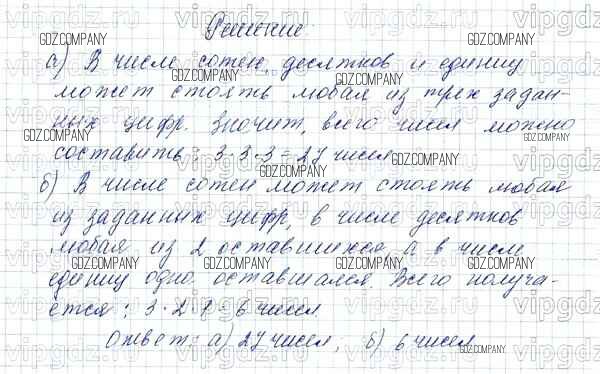 Решение
а) В числе сотен, десятков и единиц
может стоять любая из трех задан-
ных цифр. Значит, всего чисел можно
составить: 3·3·3=27 чисел
б) В числе сотен может стоять любая
из заданных цифр, в числе десятков
любая из 2 оставшихся а в числе
единиц одно оставшаяся. Всего получа-
ется: 3·2·1=6 чисел
Ответ: а) 27 чисел, б) 6 чисел